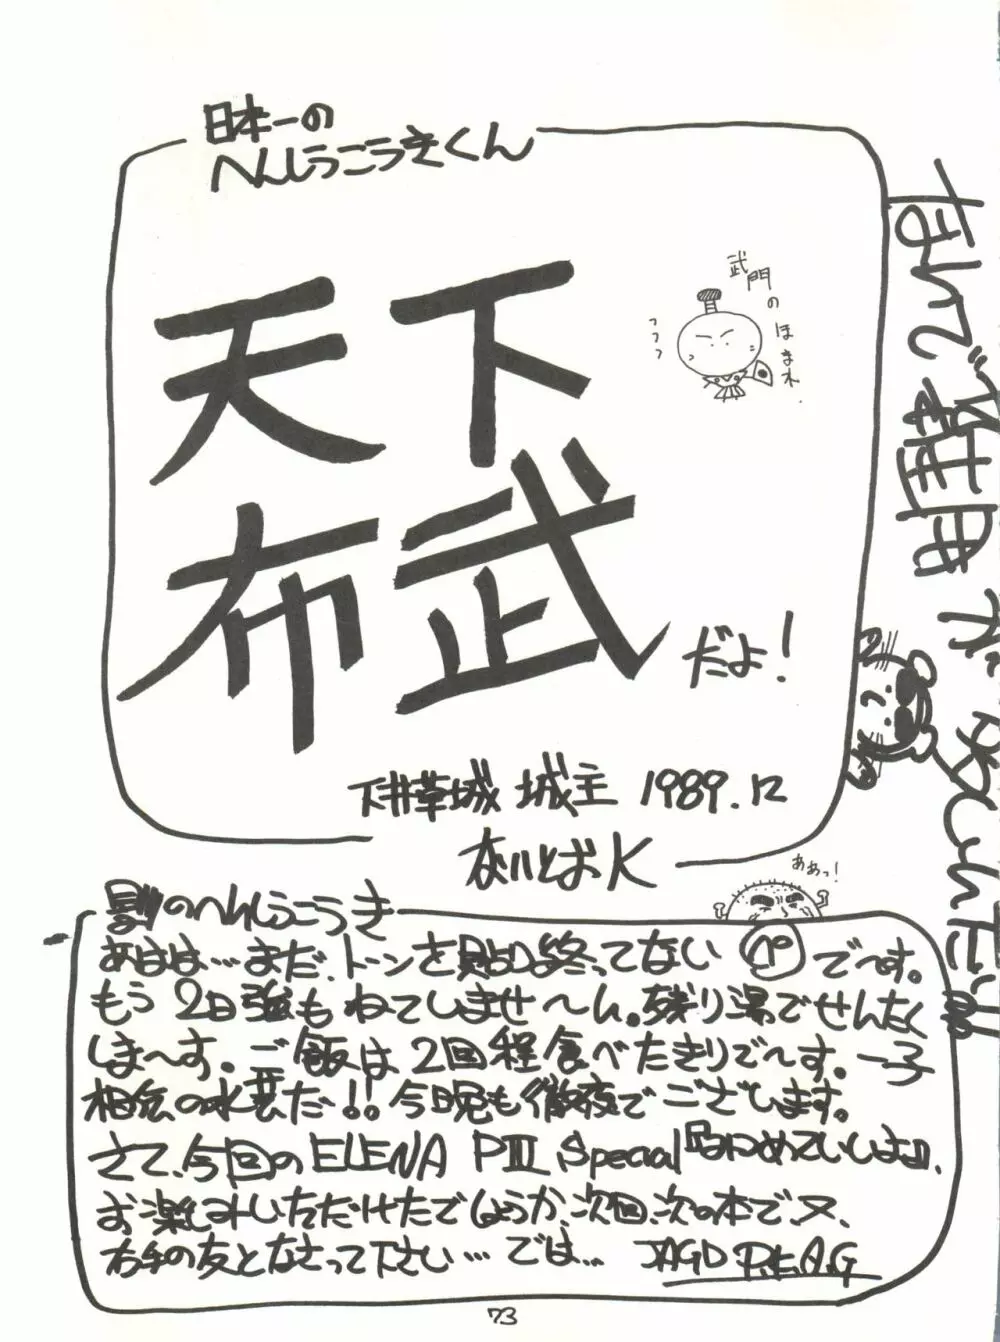 日本一の
へんしうこうきくん
天下
布武
だよ!
武門のほまれ.
フフフ
下井草城 城主 1989.12
ないとおK
なんで雑用が
ああっ!
影のへんしうこうき
あはは…まだ、トーンさえ貼り終ってない ペ で〜す。
もう2日強もねてしませ〜ん。残り湯でせんたく
しま〜す。ご飯は2回程食べたきりで〜す。一子
相伝の水芸だ!!今晩も徹夜でございます。
さて、今回のELENA PⅢ Special
お楽しみいただけたでしょうか、次回、次の本で、又、
右手の友となさって下さい…では… JAGD P.E.A.G
73